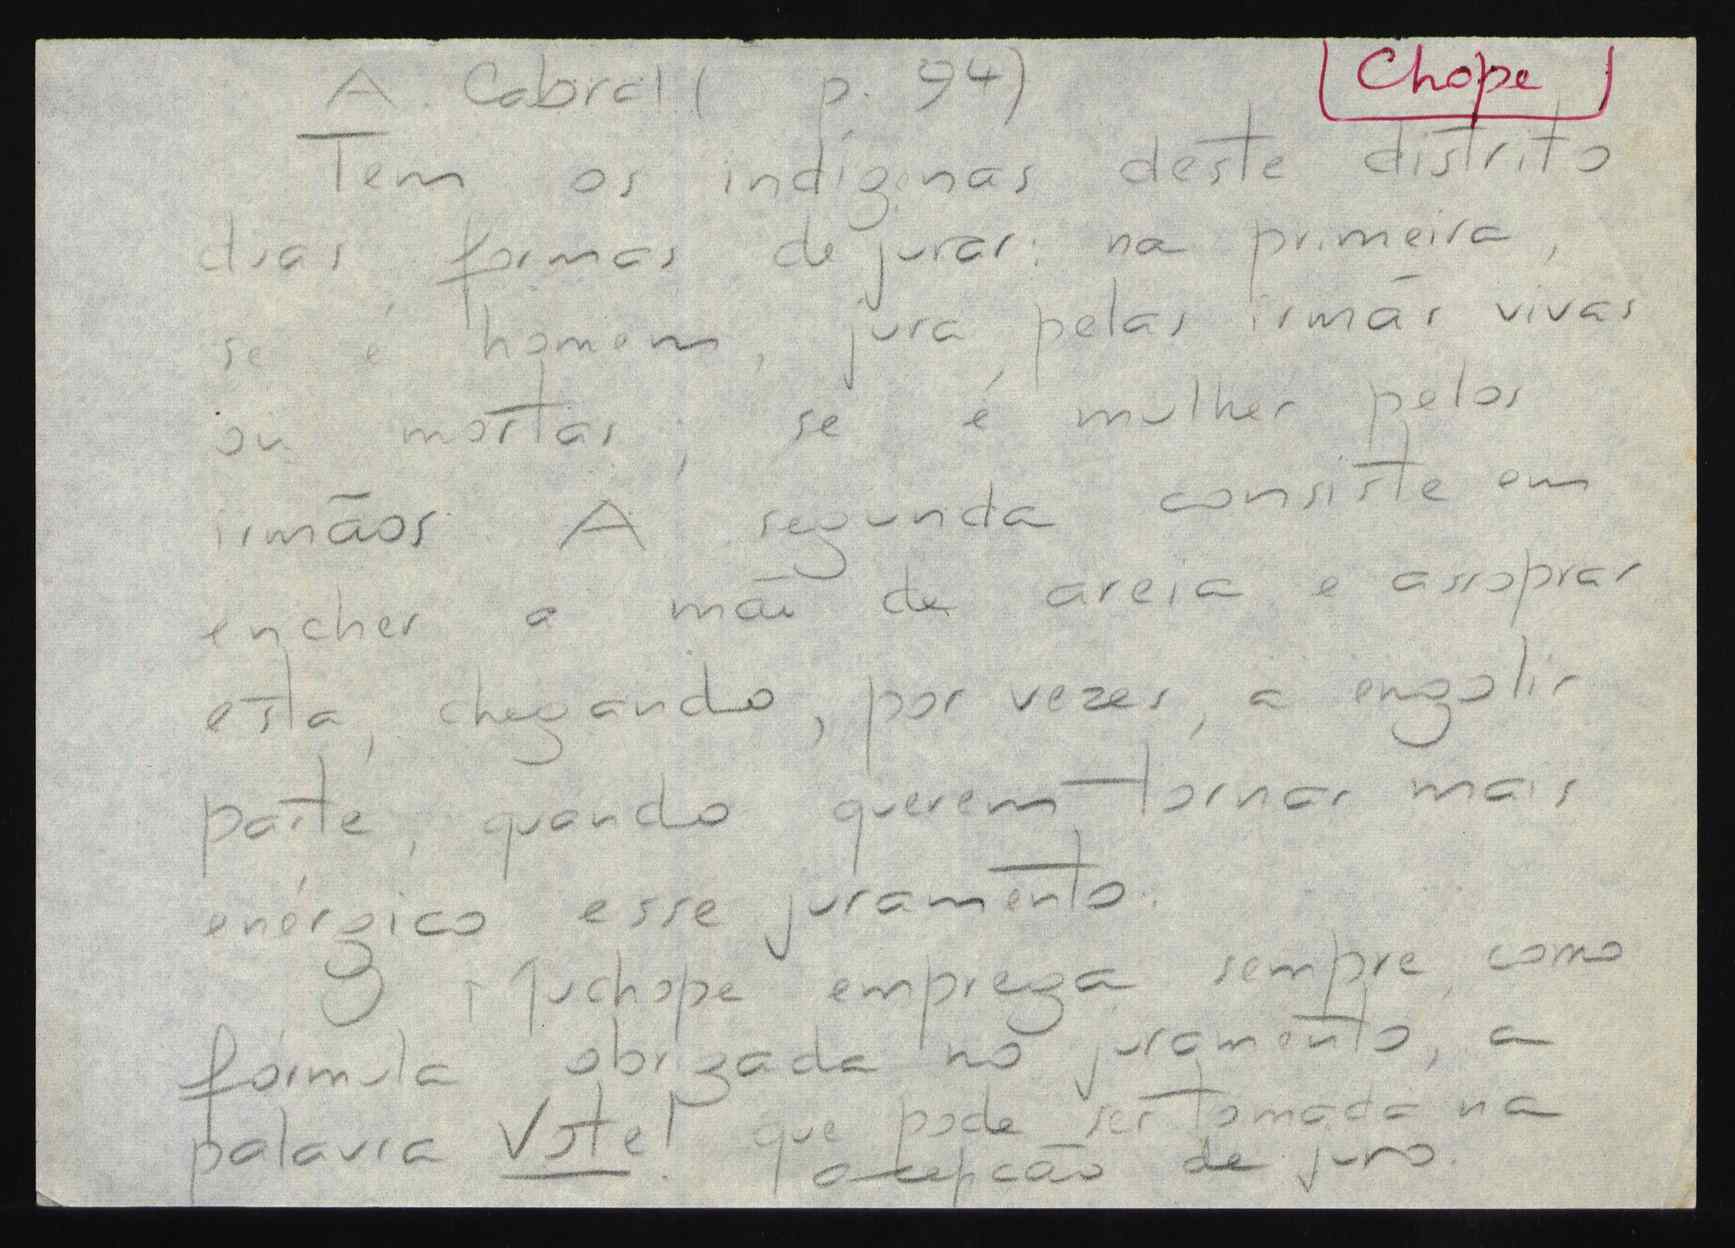 A. Cabral ( p. 94)
Chope
Tem os indígenas deste distrito
duas formas de jurar: na primeira,
se é homem, jura pelas irmãs vivas
ou mortas; se é mulher pelos
irmãos. A segunda consiste em
encher a mãi de areia e assoprar
esta, chegando, por vezes, a engolir
parte, quando querem tornar mais
enérgico esse juramento.
O Muchope emprega sempre, como
fórmula obrigada no juramento, a
palavra Vote! que pode ser tomada na
acepção de juro.